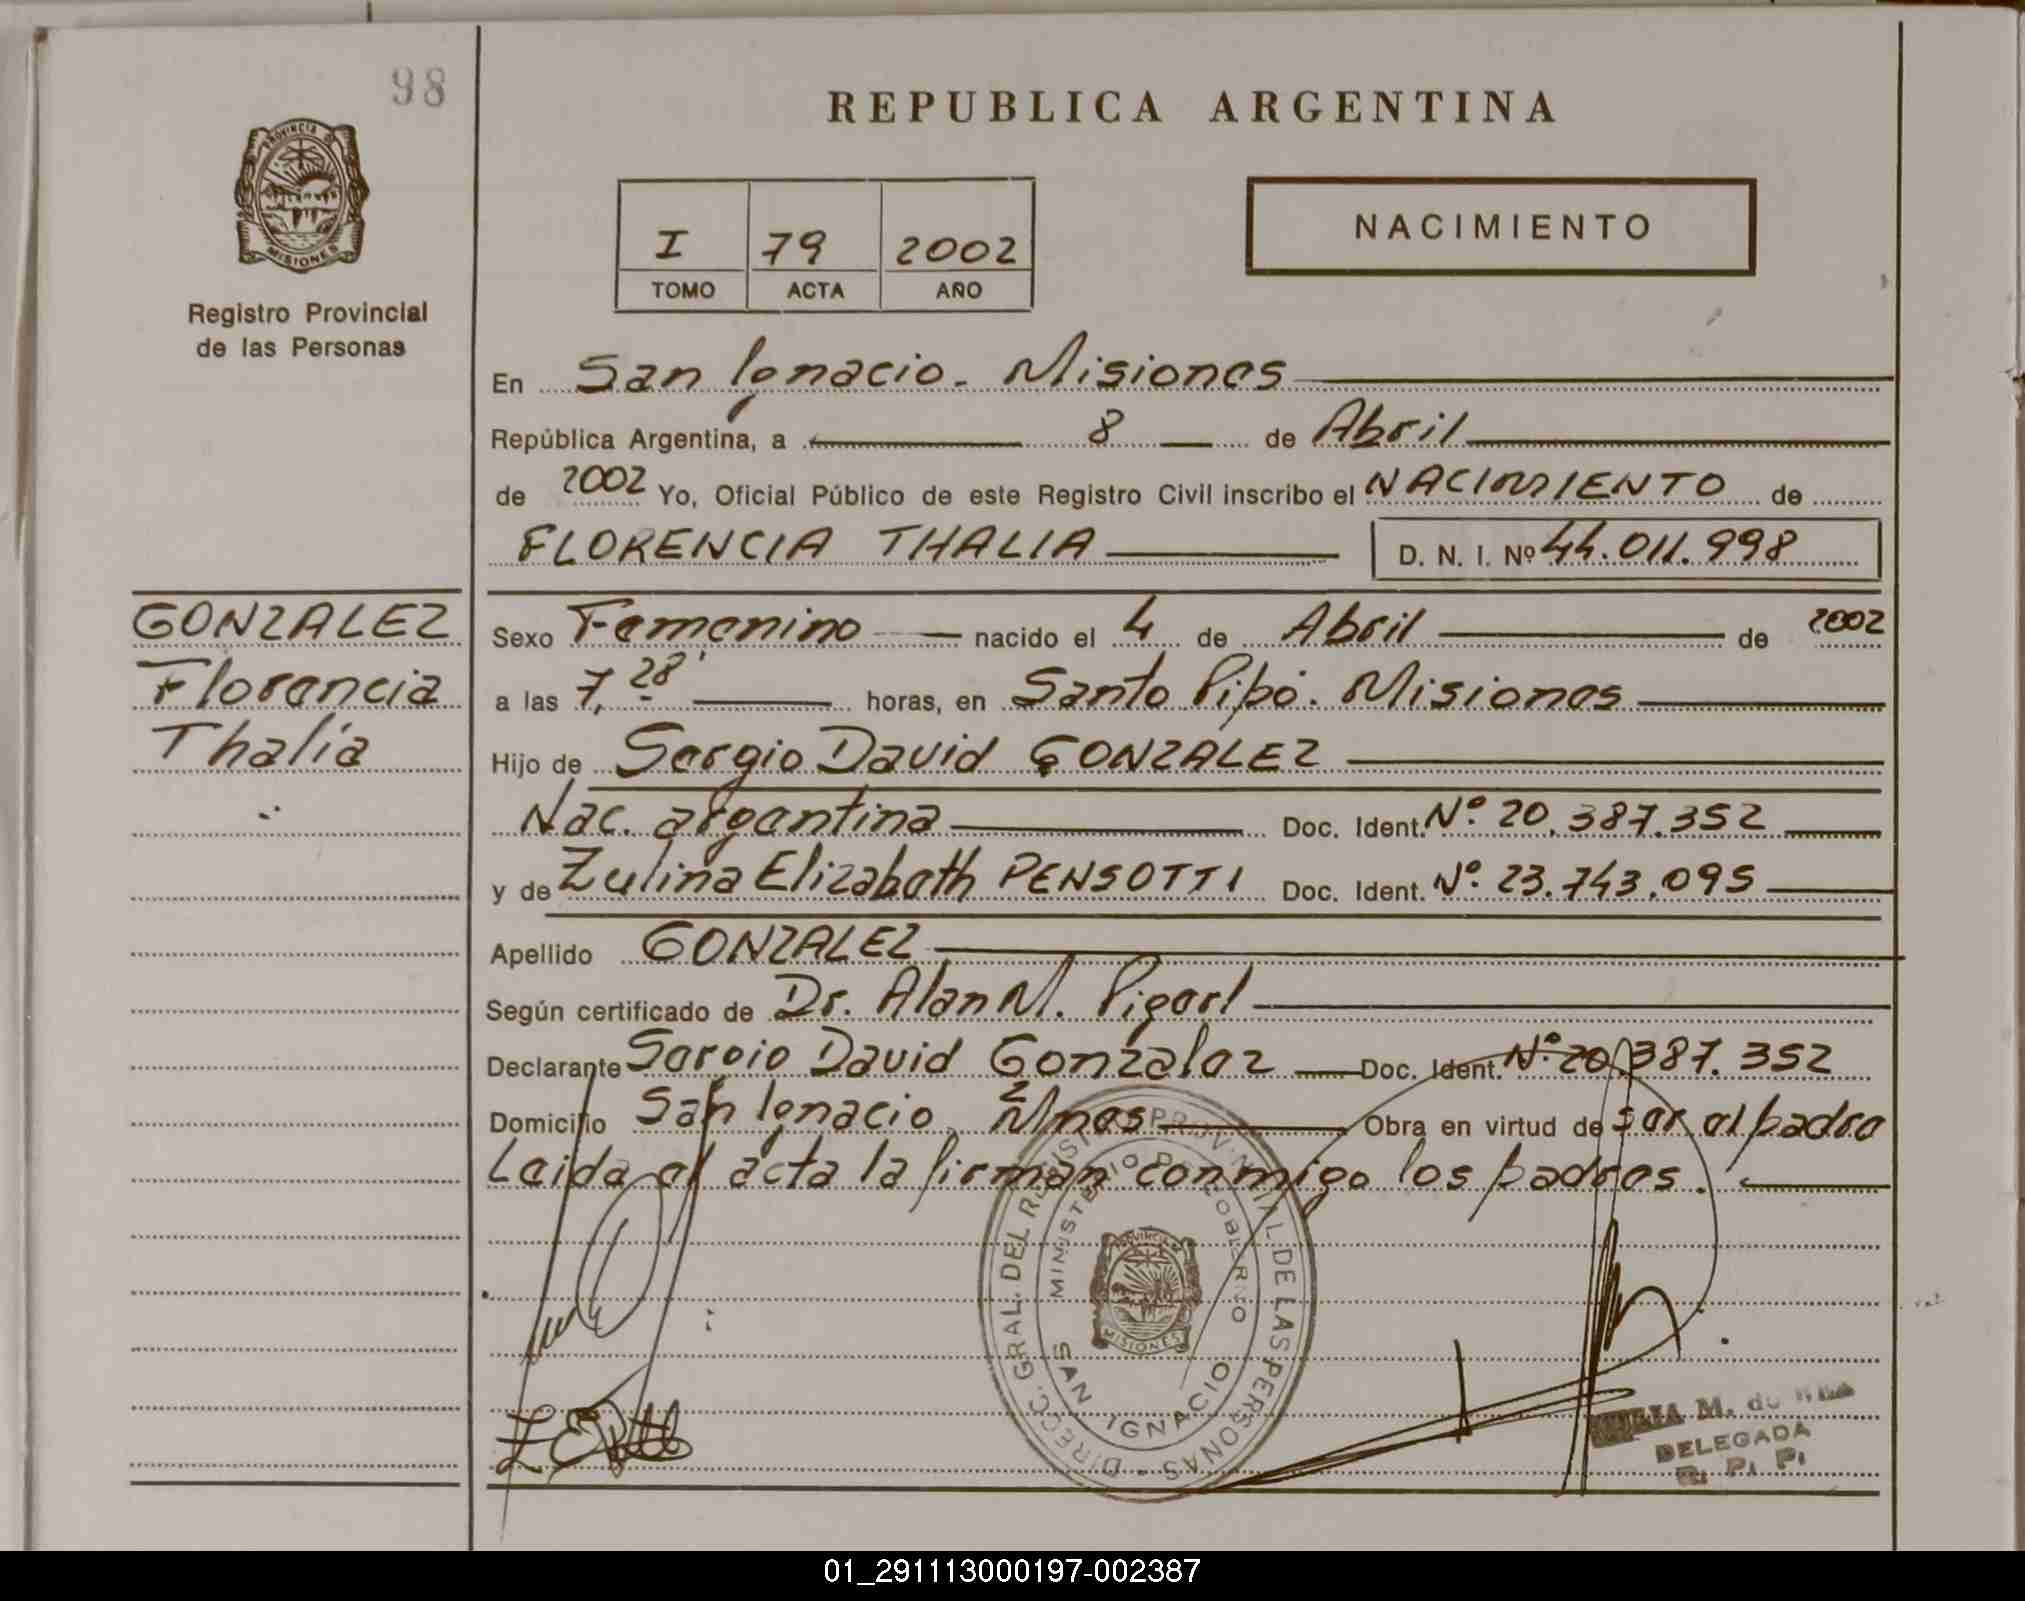 98
REPUBLICA ARGENTINA
PROVINCIA DE
MISIONES
Registro Provincial
de las Personas
I 79 2002
TOMO ACTA AÑO
NACIMIENTO
En San Ignacio - Misiones
República Argentina, a 8 de Abril
de 2002 Yo, Oficial Público de este Registro Civil inscribo el NACIMIENTO de
FLORENCIA THALIA D. N. I. Nº 44.011.998
GONZALEZ
Florencia
Thalía
Sexo Femenino nacido el 4 de Abril de 2002
a las 7,28' horas, en Santo Pipó. Misiones
Hijo de Sergio David GONZALEZ
Nac. argentina Doc. Ident. Nº. 20.387.352
y de Zulina Elizabeth PENSOTTI Doc. Ident. Nº. 23.743.095
Apellido GONZALEZ
Según certificado de Dr. Alan M.
Declarante Sergio David Gonzalez Doc. Ident. Nº. 20.387.352
Domicilio San Ignacio, Mnes Obra en virtud de ser el padre
Leida el acta la firman conmigo los padres.
DIRECC. GRAL. DEL REGISTRO PROVINCIAL DE LAS PERSONAS
MINISTERIO DE GOBIERNO
SAN IGNACIO
MISIONES
M. de
DELEGADA
R. P. P.
01_291113000197-002387